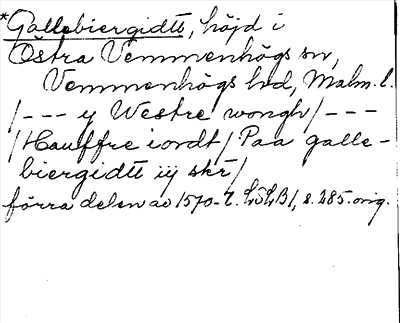 *Gallebiergidtt, höjd i
Östra Vemmenhögs sn,
Vemmenhögs hd, Malm. l.
/--- y Westre wongh/---
/Hauffre iordt/ Paa galle-
biergidtt iij skr/
förra delen av 1570-t. LSLB1, s. 285. orig.